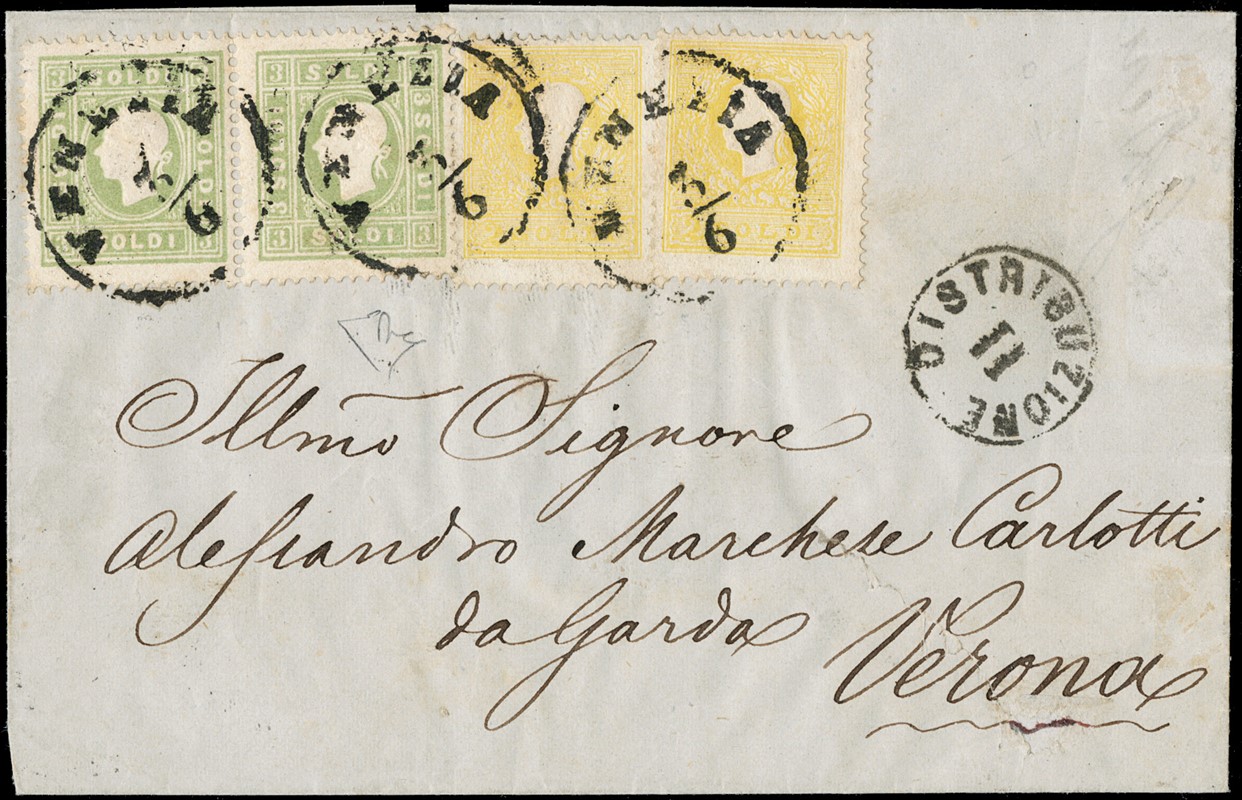 3 SOLDI 3
SOLDI
3 SOLDI 3
SOLDI
SOLDI
3 SOLDI 3
VENEZIA
5/6
VENEZIA
5/6
VENEZIA
5/6
DISTRIBUZIONE
11
Illmo Signore
Alessandro Marchese Carlotti
da Garda
Verona